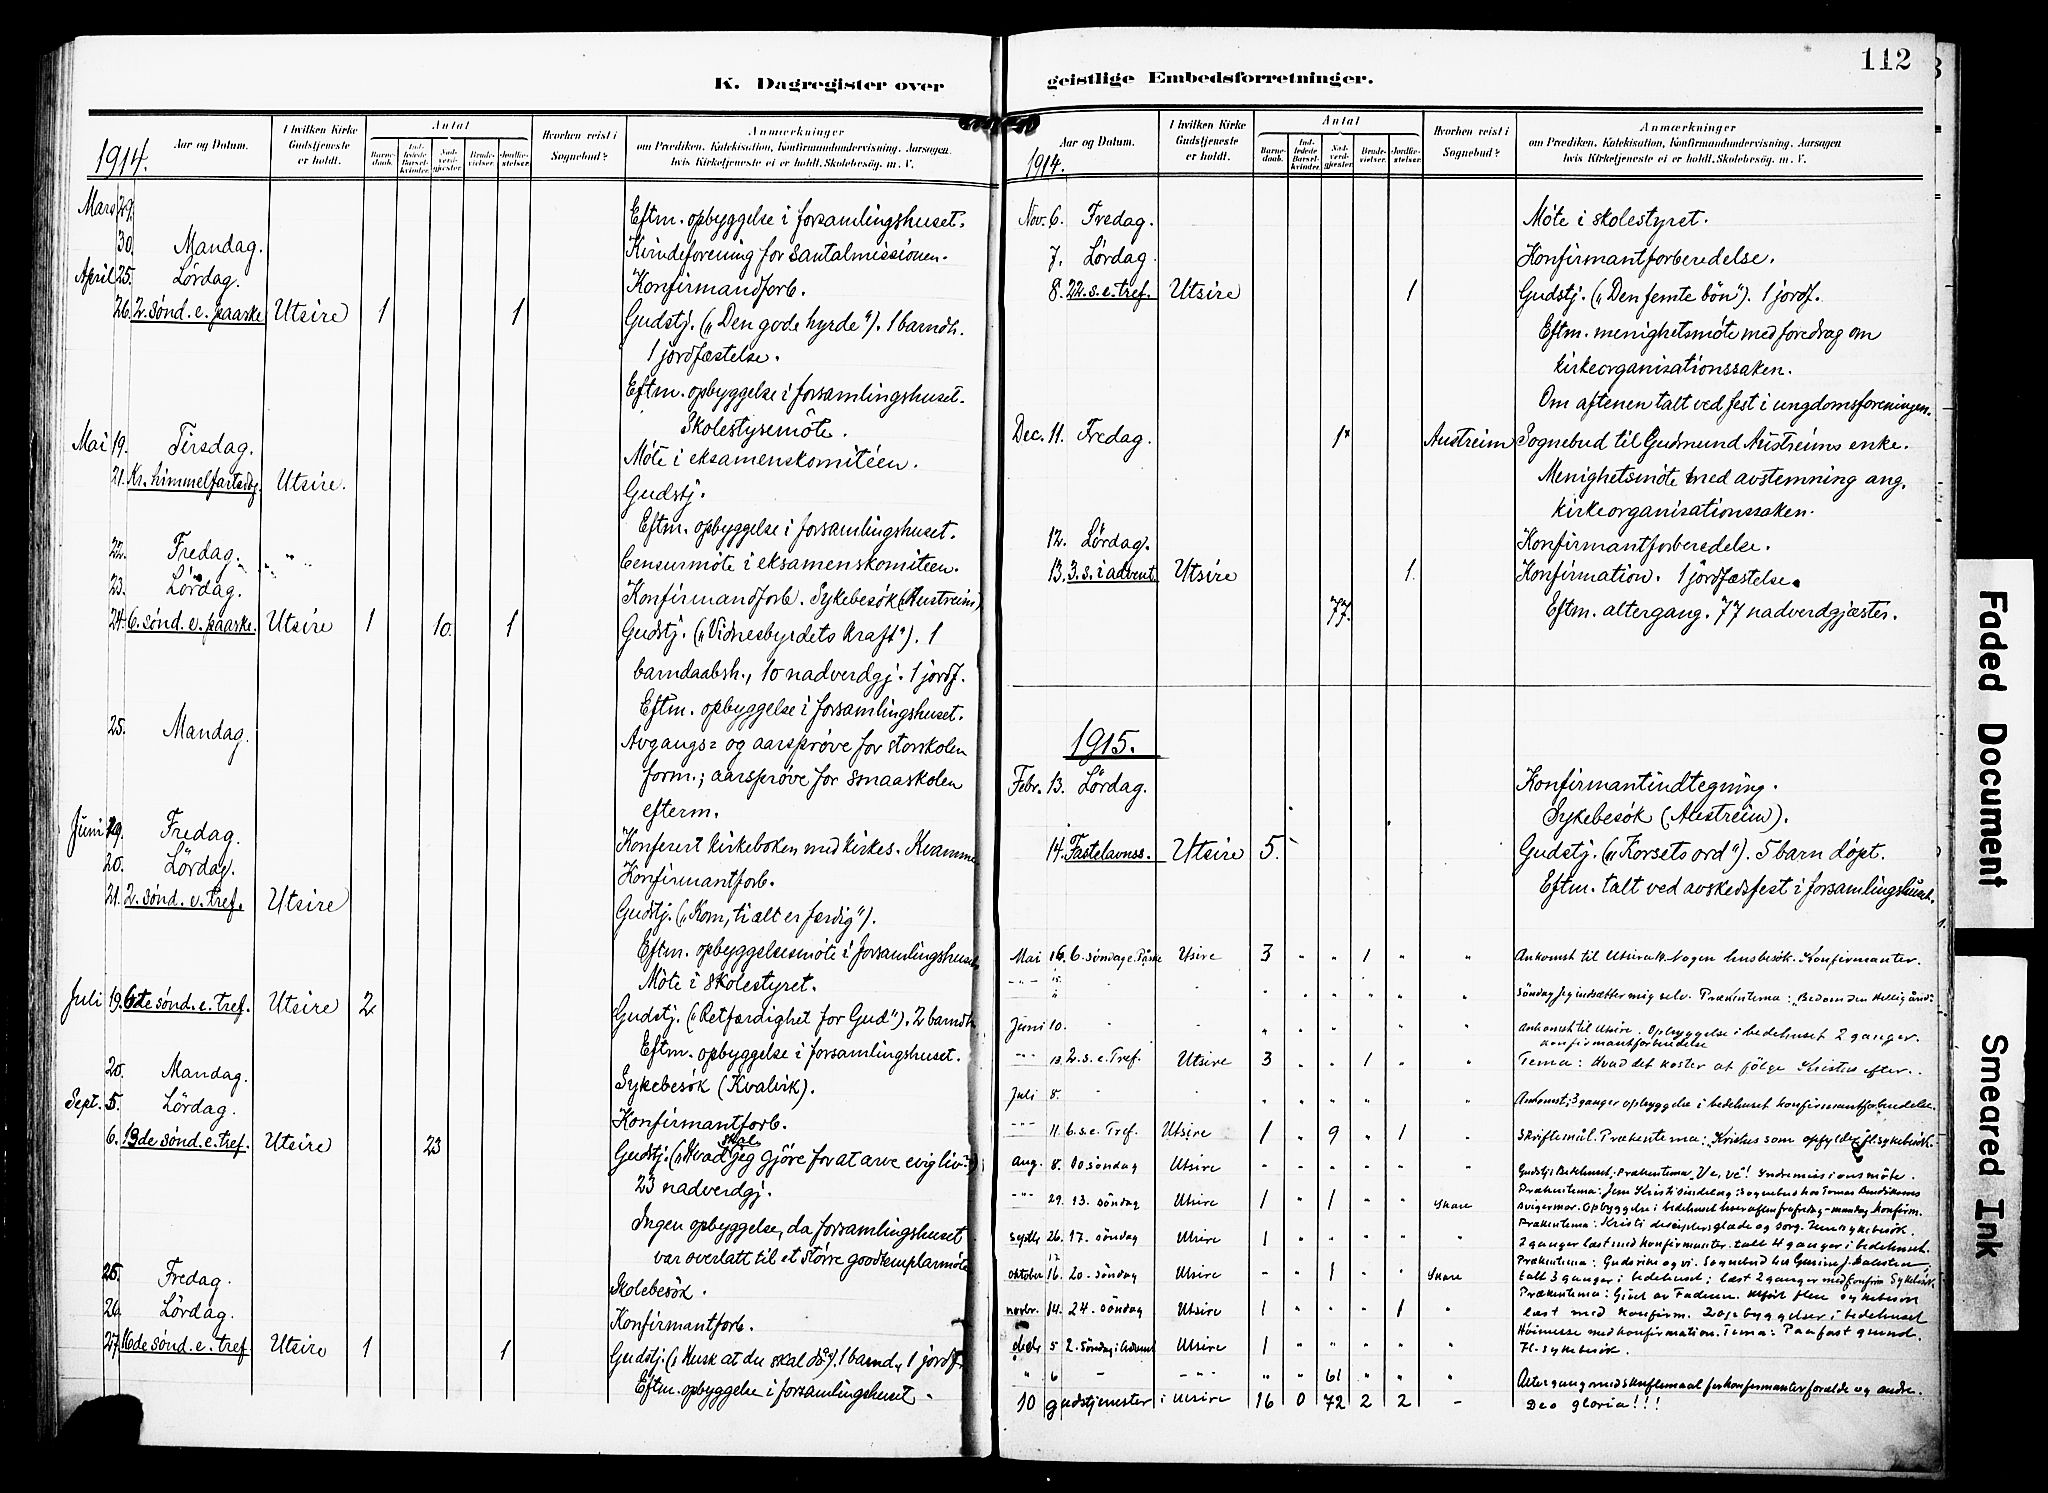 K. Dagregister over
1914.
Aar og Datum.
I hvilken Kirke Gudstjeneste er holdt.
Antal
Barne-daab.
Ind-ledede Barsel-kvinder.
Nad-verd-gjester.
Brude-vielser.
Jordfæ-stelser.
Hvorhen reist i Sognebud?
Anmærkninger
om Prædiken, Katekisation, Konfirmandundervisning, Aarsagen
hvis Kirketjeneste ei er holdt, Skolebesög. m. V.
Mars 29. Eftm. opbyggelse i forsamlingshuset.
30. Mandag. Kvindeforening for Santalmissionen.
April 25. Lørdag. Konfirmandforb.
26. 2. sønd. e. paaske Utsire 1 1 Gudstj. („Den gode hyrde"). 1 barndh.
1 jordfæstelse.
Eftm. opbyggelse i forsamlingshuset.
Skolestyremöte.
Mai 19. Tirsdag. Möte i eksamenskomitéen.
21. Kr. himmelfartsdag. Utsire. Gudstj.
Eftm. opbyggelse i forsamlingshuset.
22. Fredag. Censurmöte i eksamenskomiteen.
23. Lørdag. Konfirmandforb. Sykebesök (Austreim)
24. 6. sønd. e. paaske. Utsire 1 10. 1 Gudstj. („Vidnesbyrdets kraft"). 1
barndaabsh., 10 nadverdgj. 1 jordf.
Eftm. opbyggelse i forsamlingshuset.
25. Mandag. Avgangs= og aarsprøve for storskolen
form.; aarsprøve for smaaskolen
efterm.
Juni 19. Fredag. Konferert kirkeboken med kirkes. Kvamme
20. Lördag. Konfirmantforb.
21. 2. sønd. e. tref. Utsire Gudstj. („Kom, ti alt er færdig").
Eftm. opbyggelsesmöte i forsamlingshuset
Möte i skolestyret.
Juli 19. 6te sønd. e. tref. Utsire 2 Gudstj. („Retfærdighet for Gud"). 2 barndh.
Eftm. opbyggelse i forsamlingshuset.
20. Mandag. Sykebesök (Kvalvik).
Sept. 5. Lördag. Konfirmantforb.
6. 13de sønd. e. tref. Utsire 23 Gudstj. („Hvad skal jeg gjöre for at arve evig liv").
23 nadverdgj.
Ingen opbyggelse, da forsamlingshuset
var overlatt til et större goodtemplarmöte
25. Fredag. Skolebesök.
26. Lördag. Konfirmantforb.
27. 16de sønd. e. tref. Utsire 1 1 Gudstj. („Husk at du skal dö"). 1 barnd., 1 jordf.
Eftm. opbyggelse i forsamlingshuset.
geistlige Embedsforretninger.
112
1914.
Aar og Datum.
I hvilken Kirke Gudstjeneste er holdt.
Antal
Barne-daab.
Ind-ledede Barsel-kvinder.
Nad-verd-gjester.
Brude-vielser.
Jordfæ-stelser.
Hvorhen reist i Sognebud?
Anmærkninger
om Prædiken, Katekisation, Konfirmandundervisning, Aarsagen
hvis Kirketjeneste ei er holdt, Skolebesög. m. V.
Nov. 6. Fredag. Möte i skolestyret.
7. Lördag. Konfirmantforberedelse.
8. 22. s. e. tref. Utsire 1 Gudstj. („Den femte bön"). 1 jordf.
Eftm. menighetsmöte med foredrag om
kirkeorganisationssaken.
Om aftenen talt ved fest i ungdomsforeningen.
Dec. 11. Fredag. 1 Austreim Sognebud til Gudmund Austreims enke.
Menighetsmöte med avstemning ang.
kirkeorganisationssaken.
12. Lördag. Konfirmantforberedelse.
13. 3. s. i advent. Utsire 1. Konfirmation. 1 jordfæstelse.
77. Eftm. altergang. 77 nadverdgjæster.
1915.
Febr. 13. Lördag. Konfirmantindtegning.
Sykebesök (Austreim).
14. Fastelavnss. Utsire 5. Gudstj. („Korsets ord"). 5 barn döpt.
Eftm. talt ved avskedsfest i forsamlingshuset.
Mai 16. 6. söndag e. Påske Utsire 3 „ „ 1 „ „ Ankomst til Utsira Nogen husbesök. Konfirmanter.
Söndag jeg indsætter mig selv. Prækentema: „Bed om den Hellig ånd"
Juni 10. Ankomst til Utsire. Opbyggelse i bedehuset 2 ganger.
Konfirmantforberedelse
13. 2. s. e. Tref. Utsire 3 „ „ 1 „ „ Tema: Hvad det koster at følge Kristus efter.
Juli 8. Ankomst; 3 ganger opbyggelse i bedehuset konfirmantforberedelse.
11. 6. s. e. Tref. Utsire 1 „ 9 „ 1 „ Skriftemål. Prækentema: Kristus som opfylder fl. sykebesök.
Aug. 8. 10 söndag Utsire Gudstj. i Bedehuset; Prækentema „Ve, ve"! Indremissionsmöte.
29. 13. söndag Utsire 1 „ 1 „ „ Skare
svigermor. Opbyggelse i bedehuset hver aften fra fredag-mandag konfirm.
septbr 26. 17. söndag Utsire 1 Prækentema: Kristi disiplers glæde og sorg. Jevn sykebesök.
2 ganger læst med konfirmanter. talt 4 ganger i bedehuset.
oktober 17. 16. 20. söndag Utsire - - 1 Skare
talt 3 ganger i bedehuset; læst 2 ganger med konfirm Sykebesök
novbr. 14. 24. söndag Utsire 1 „ „ „ 1 Prækentema: Givet av Faderen. flere sykebesök
læst med konfirm. 2 opbyggelser i bedehuset
decbr 5 2. söndag i Advent Utsire 1 Höimesse med konfirmation. Tema: Paa fast grund.
Fl. sykebesök.
„ 6 61 Altergang med skriftemaal for konfirmanter forældre og andre.
10 gudstjenester i Utsire 16 0 72 2 2 - Deo gloria!!!
Faded Document
Smeared Ink